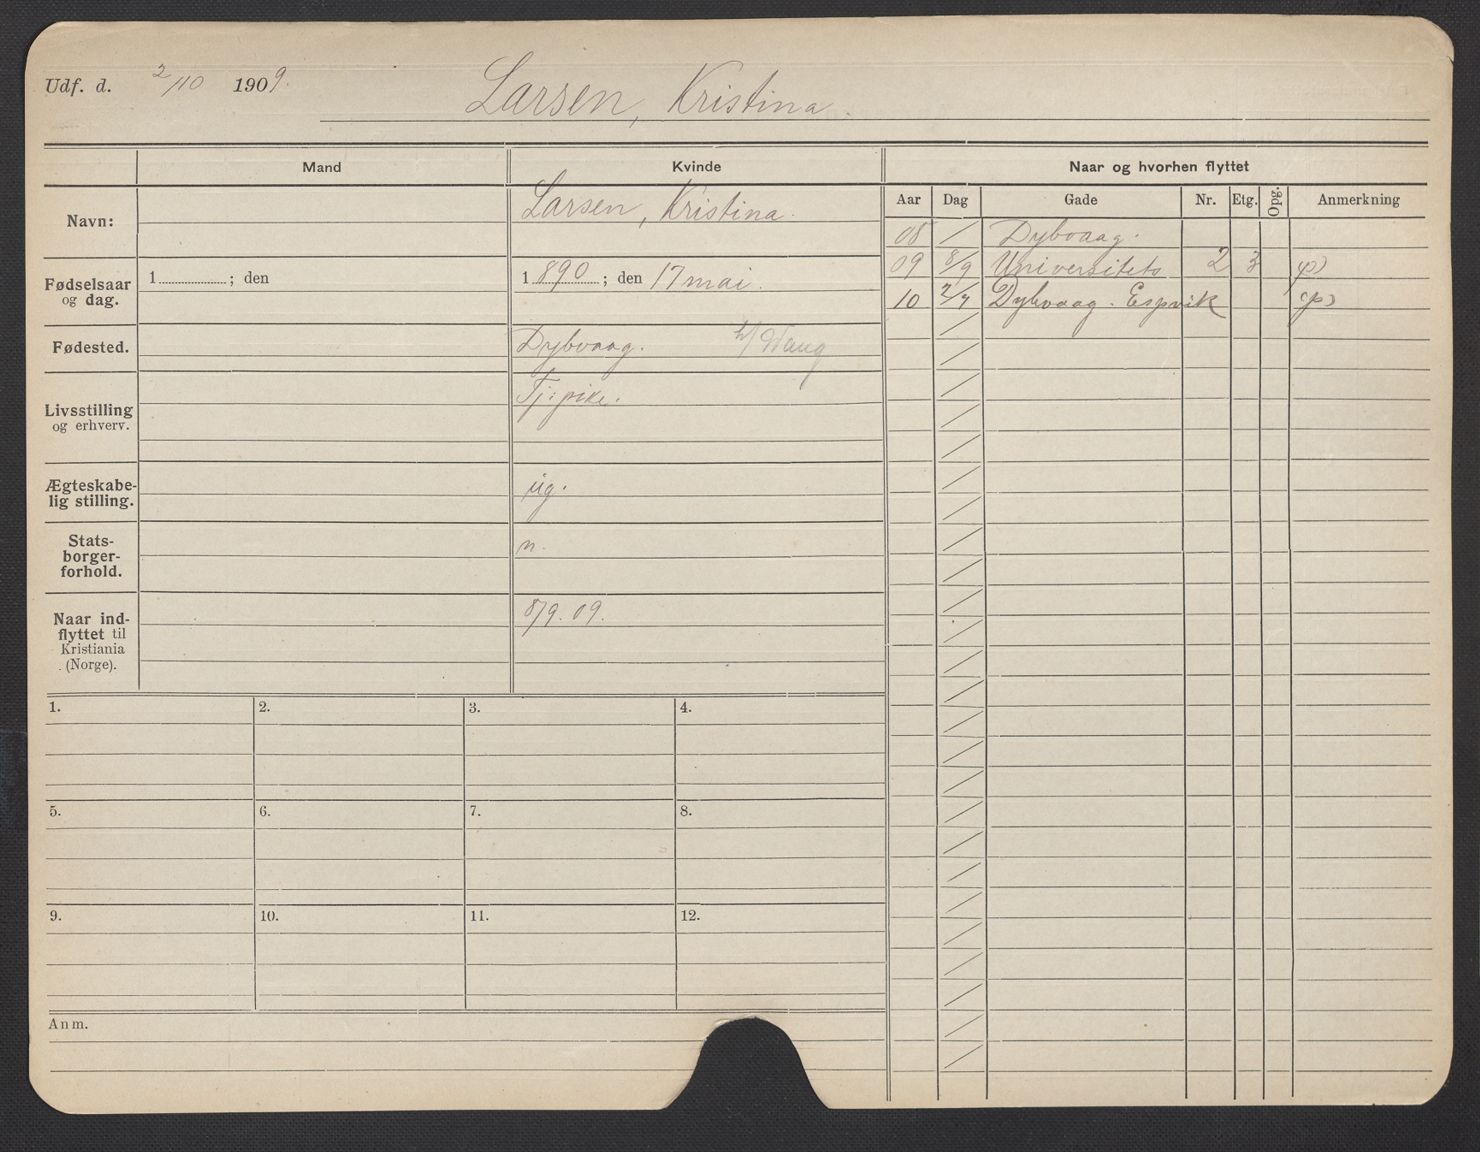 Udf. d. 2/10 1909.
Larsen, Kristina.
Mand
Kvinde
Naar og hvorhen flyttet
Navn:
Larsen, Kristina.
Fødselsaar og dag.
1 ; den
1 890 ; den 17 mai.
Fødested.
Dybvaag.
Livsstilling og erhverv.
Tj: pike.
Ægteskabe-
lig stilling.
ug.
Stats-
borger-
forhold.
n.
Naar ind-
flyttet til
Kristiania
(Norge).
8/9. 09.
Aar Dag Gade Nr. Etg. Opg. Anmerkning
08 / Dybvaag.
09 8/9 Universitets 2 3 p)
10 2/7 Dybvaag. Espvik (p)
1. 2. 3. 4.
5. 6. 7. 8.
9. 10. 11. 12.
Anm.